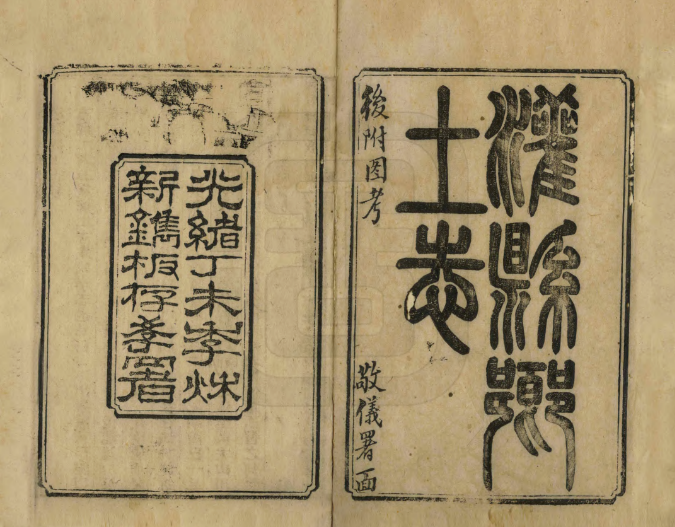 灌縣鄉
土志
後附圖考
敬儀署面
光緒丁未季秋
新鐫板存斈署